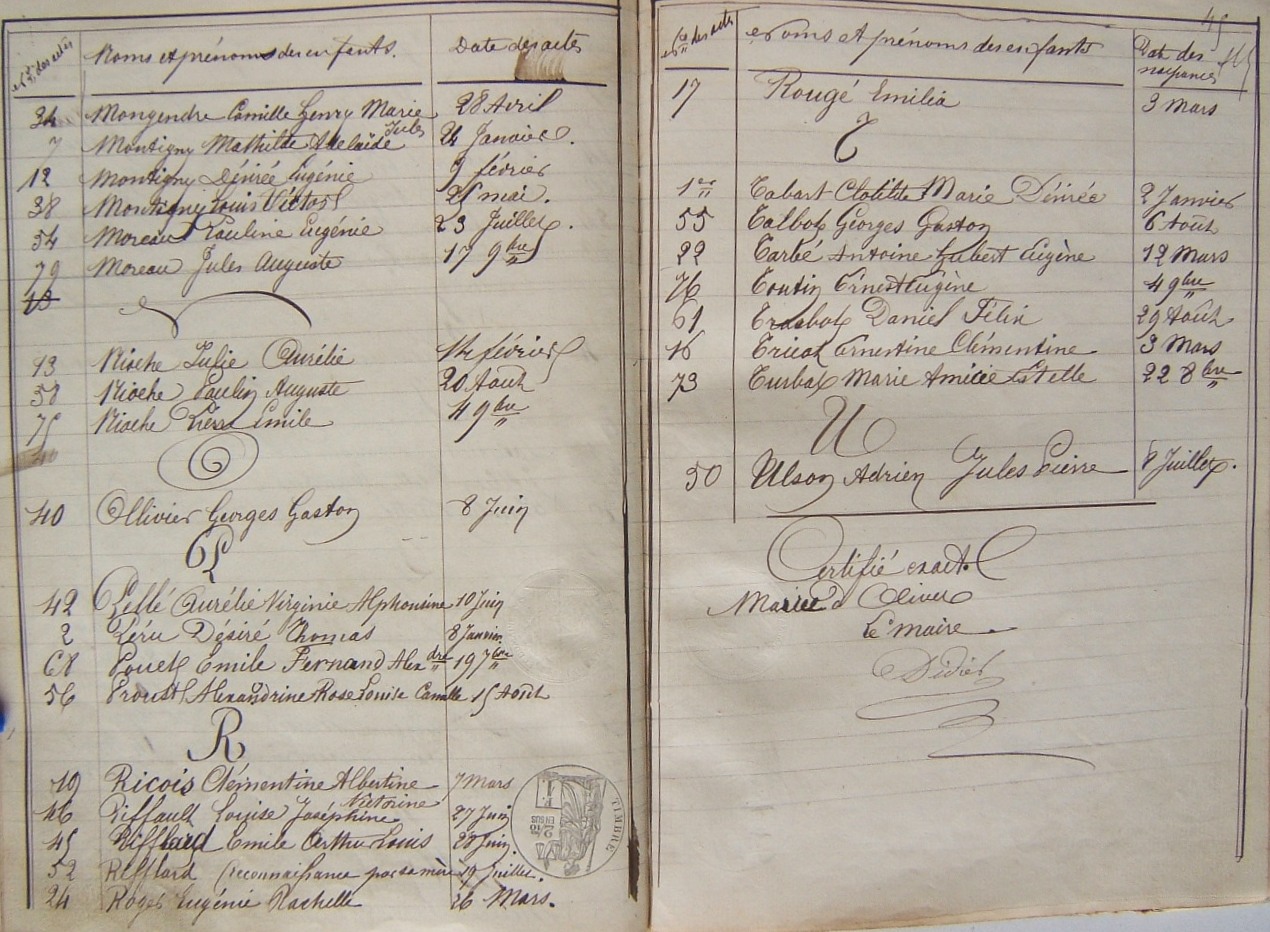 Nos des actes Noms et prénoms des enfants. Date des actes
34 Mongendre Camille Henry Marie Jules 28 Avril
7 Montigny Mathilde Adelaïde 24 Janvier.
12 Montigny Désirée Eugénie 9 février
38 Montigny Louis Victor 25 mai.
54 Moreau Pauline Eugénie 23 Juillet.
79 Moreau Jules Auguste 17 9bre
13
N
13 Nioche Julie Aurélie 14 février
58 Nioche Paulin Auguste 20 Août
75 Nioche Pierre Emile 4 9bre
O
40 Ollivier Georges Gaston 8 Juin
P
42 Pellé Aurélie Virginie Alphonsine 10 Juin
2 Péru Désiré Thomas 8 Janvier
68 Pouet Emile Fernand Alexdre 19 7bre
56 Proust Alexandrine Rose Louise Camille 15 Août
R
19 Ricois Clémentine Albertine 7 Mars
46 Riffault Louise Joséphine Victorine 27 Juin
45 Rifflard Emile Arthur Louis 28 Juin.
52 Rifflard (reconnaissance par sa mère 19 Juillet.
24 Roger Eugénie Rachelle 26 Mars.
TIMBRE
1 F
2/10
EN SUS
45
Nos des actes Noms et prénoms des enfants Date des naissances 45
17 Rougé Emilia 3 Mars
T
1er Tabart Clotilde Marie Désirée 2 Janvier
55 Talbot Georges Gaston 6 Août
22 Tarbé Antoine Hubert Eugène 12 Mars
76 Toutin Ernest Eugène 4 9bre
61 Trasbot Daniel Félix 29 Août
16 Tricot Ernestine Clémentine 3 Mars
73 Turbat Marie Amicie Estelle 22 8bre
U
50 Ulson Adrien Jules Pierre 8 Juillet.
Certifié exact.
Mairie d'Olivet
Le maire
Didier